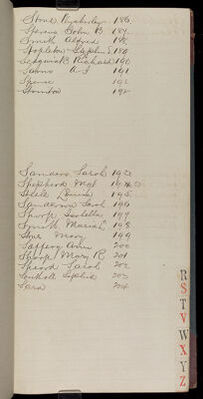 Stone Kimberley 186
Spears John B 187
Smith Alfred 188
Stapleton Stephen E 189
Sedgwick Richard 190
Sarno A J 191
Spense 192
Stanton 192
Sanders Sarah 193
Shepherd Mgt 194
Steele Louisa 195
Sanderson Sarah 196
Shoop Isabella 197
Smith Mariah 198
Stone Mary 199
Saffery Ann 200
Shoop Mary R 201
Sarah 202
Sophia 203
Sara 204
R
S
T
V
W
X
Y
Z